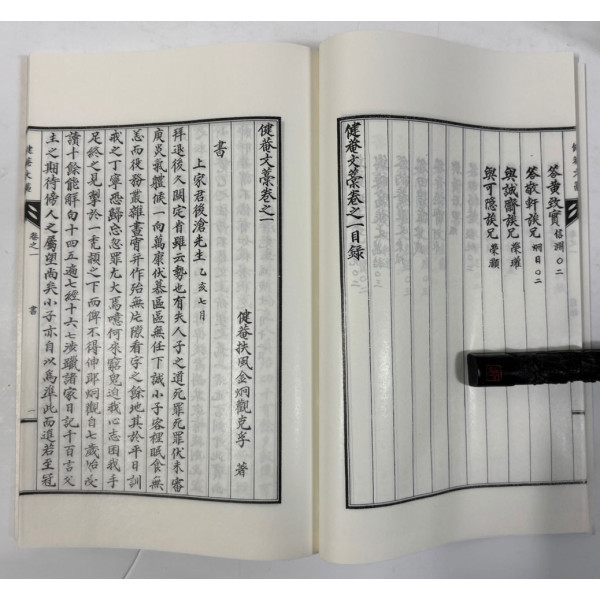 答黃致實 信淵 ○二
答敬軒族兄 炯日 ○二
與誠齋族兄 榮璡
與可隱族兄 榮顥
健菴文藁卷之一目錄
健菴文藁卷之一
健菴扶風金炯觀克孚 著
書
上家君後滄先生 乙亥七月
拜退後久闕定省雖云勢也有夫人子之道死罪死罪伏未審
庚炎氣體候一向萬康伏慕區區無任下誠小子客裡眠食無
恙而後務叢雜晝宵并作殆無隙看字之餘地其於平日訓
戒之丁寧恐歸忘忽罪尤大焉噫何來窮鬼迫我心志困我手
足終之見掣於一額之下而俾不得伸炯觀自七歲始受
讀十餘能解句十四五遍七經十六七涉獵諸家日記千百言父
主之期待傍人之屬望尚矣小子亦自以爲準此而進若至冠
健菴文藁 卷之一 書 一